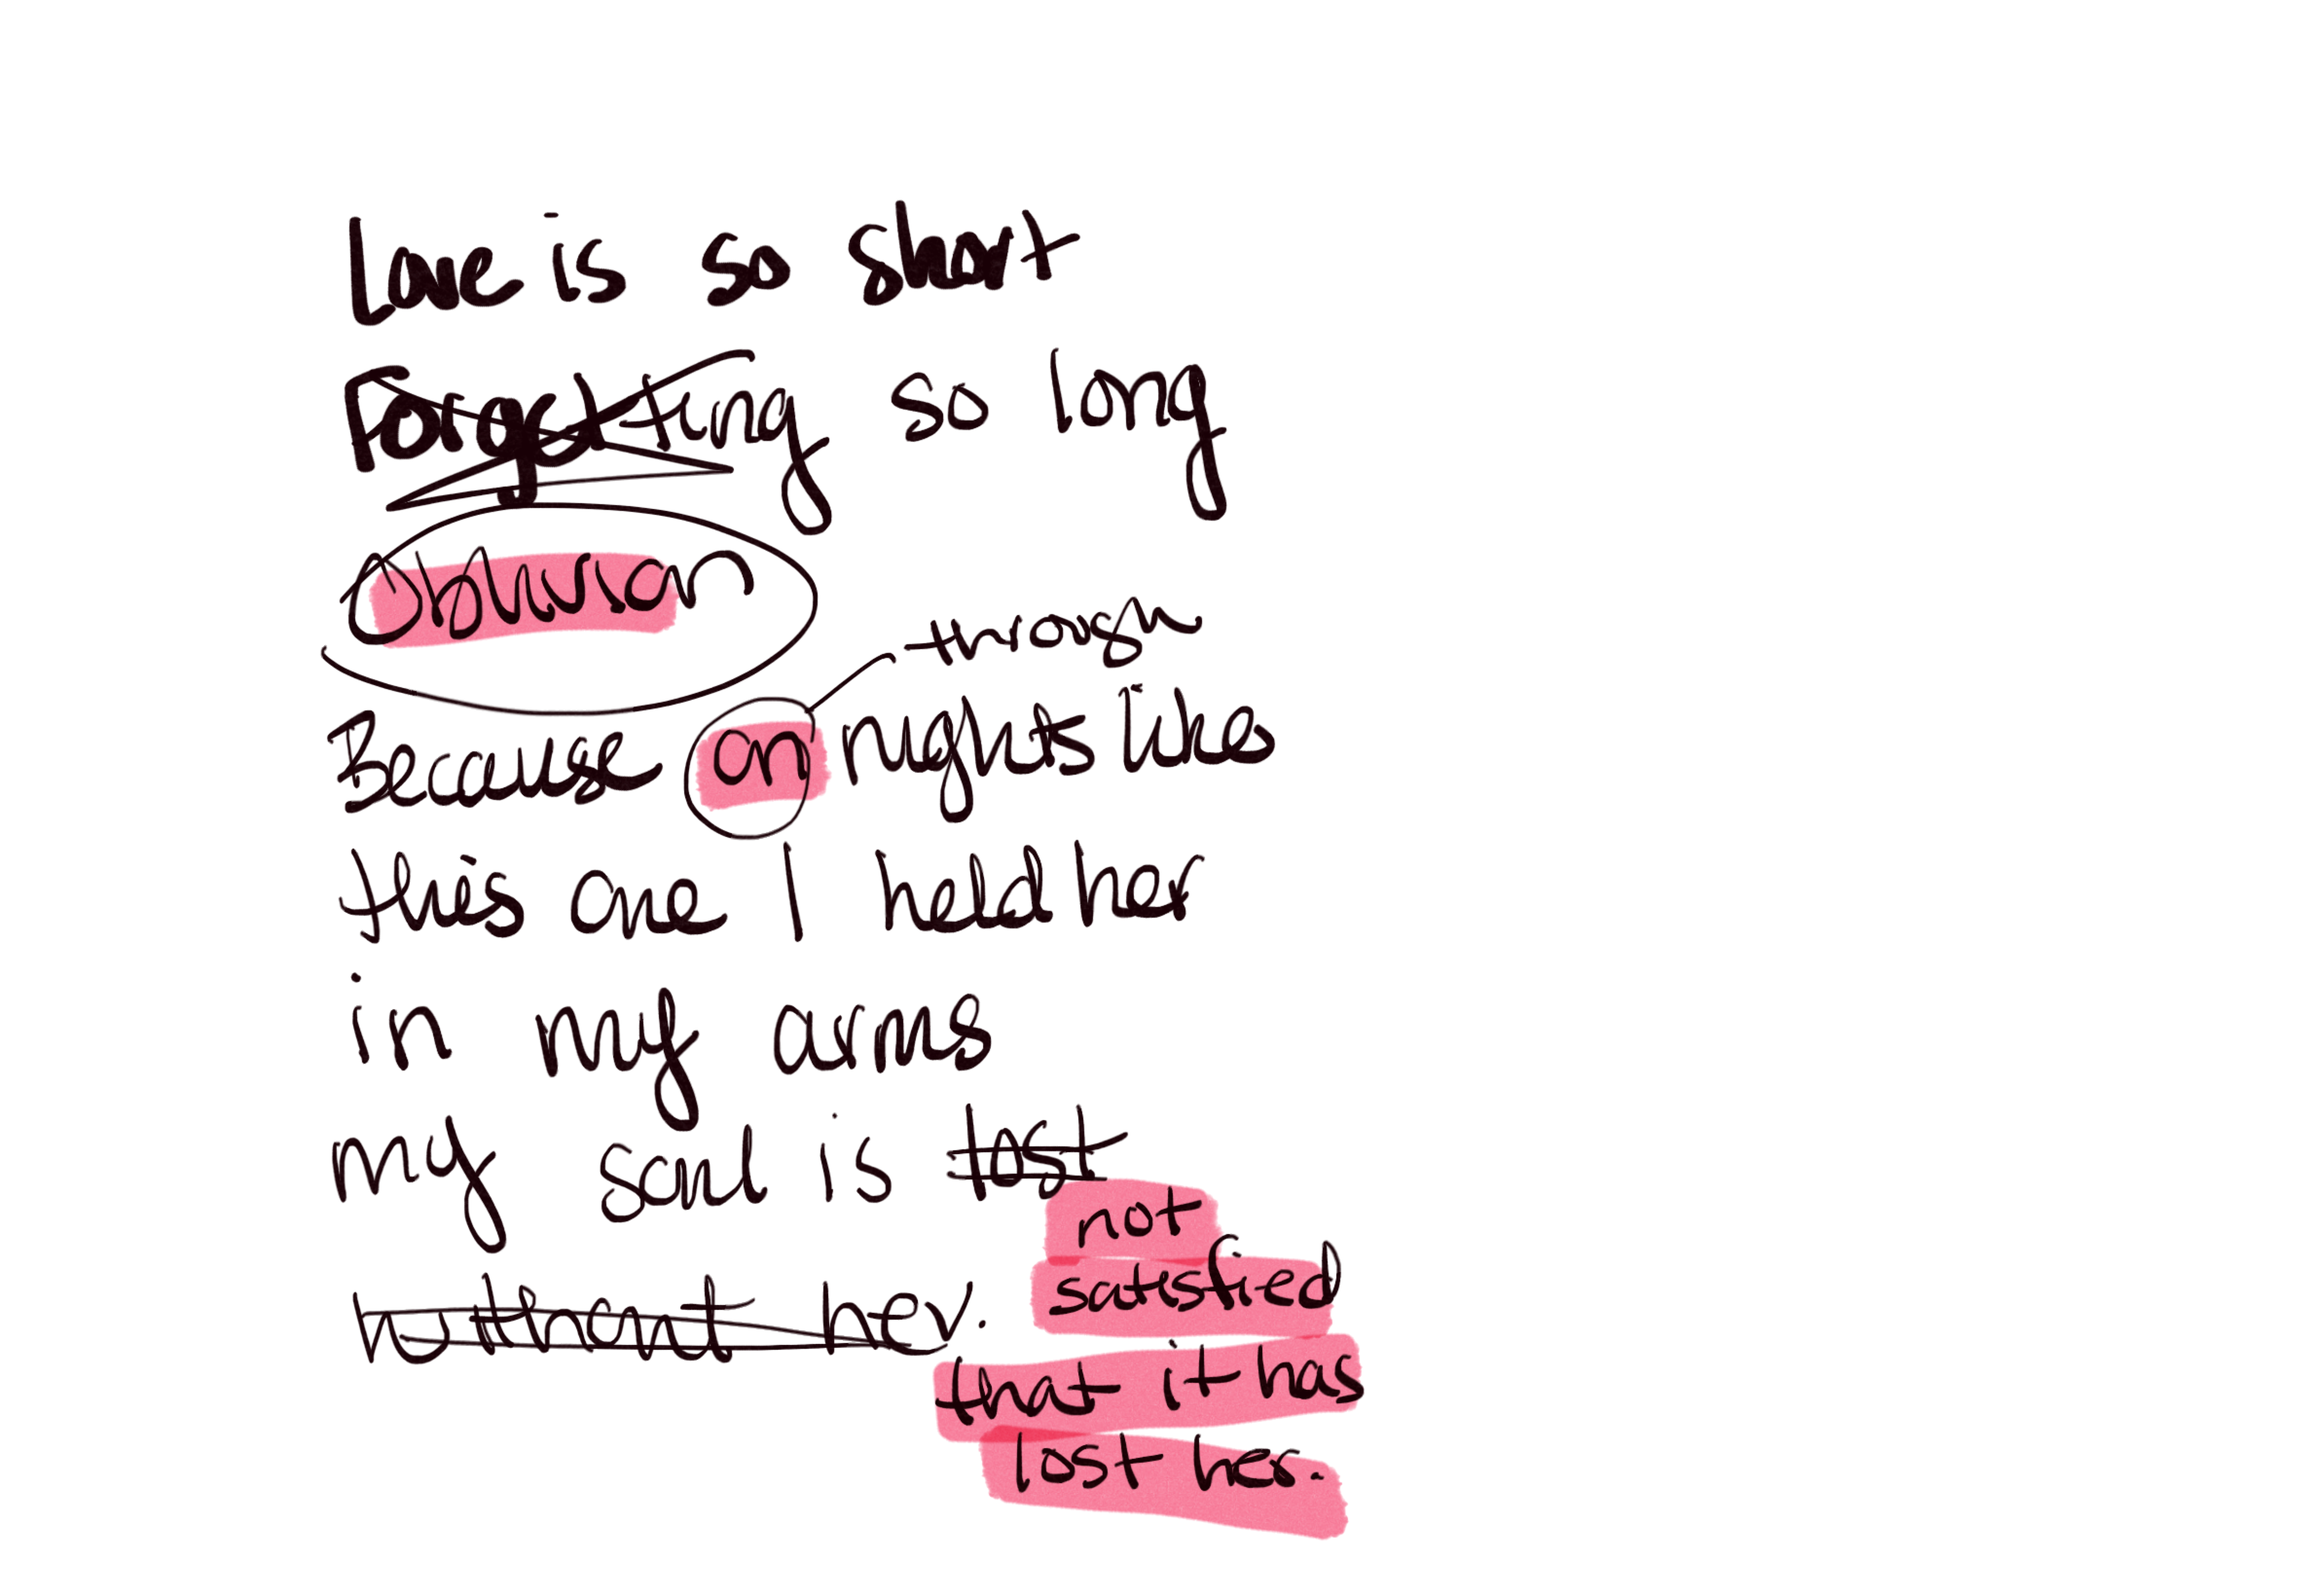 Love is so short
Forgetting so long
Oblivion
through
Because on nights like
this one I held her
in my arms
my soul is lost
not
without her. satisfied
that it has
lost her.